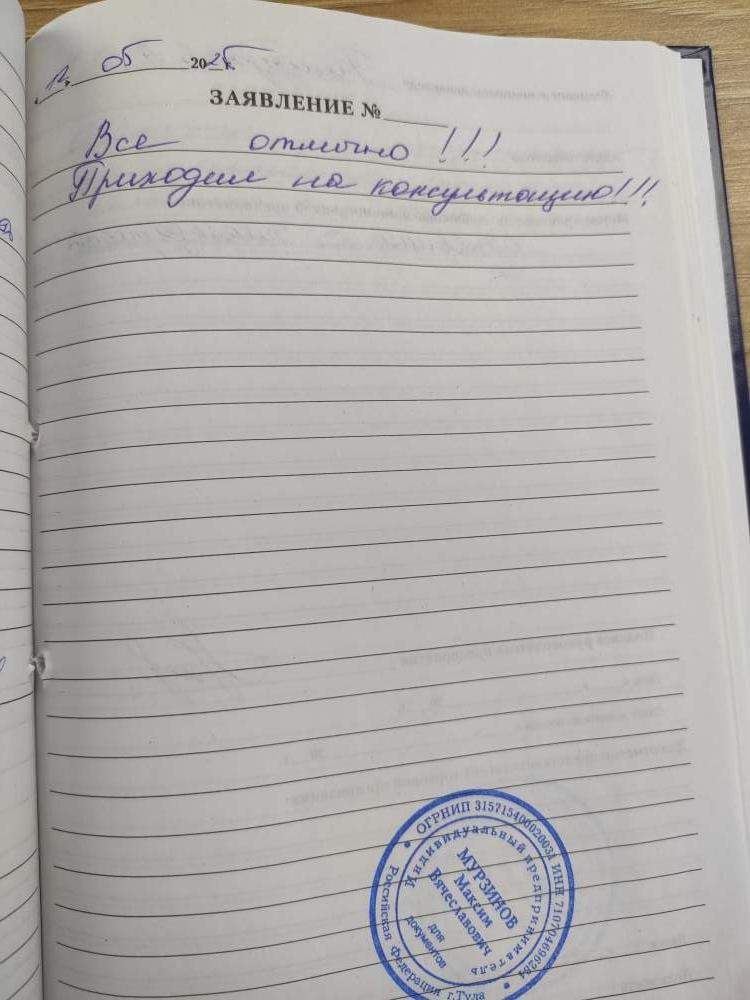 12. 05 2025г.
ЗАЯВЛЕНИЕ №
Все отлично !!!
Приходил на консультацию!!!
ОГРНИП 315715400020034 ИНН 710704696284
Индивидуальный предприниматель
МУРЗИНОВ
Максим
Вячеславович
для
документов
Российская Федерация г.Тула